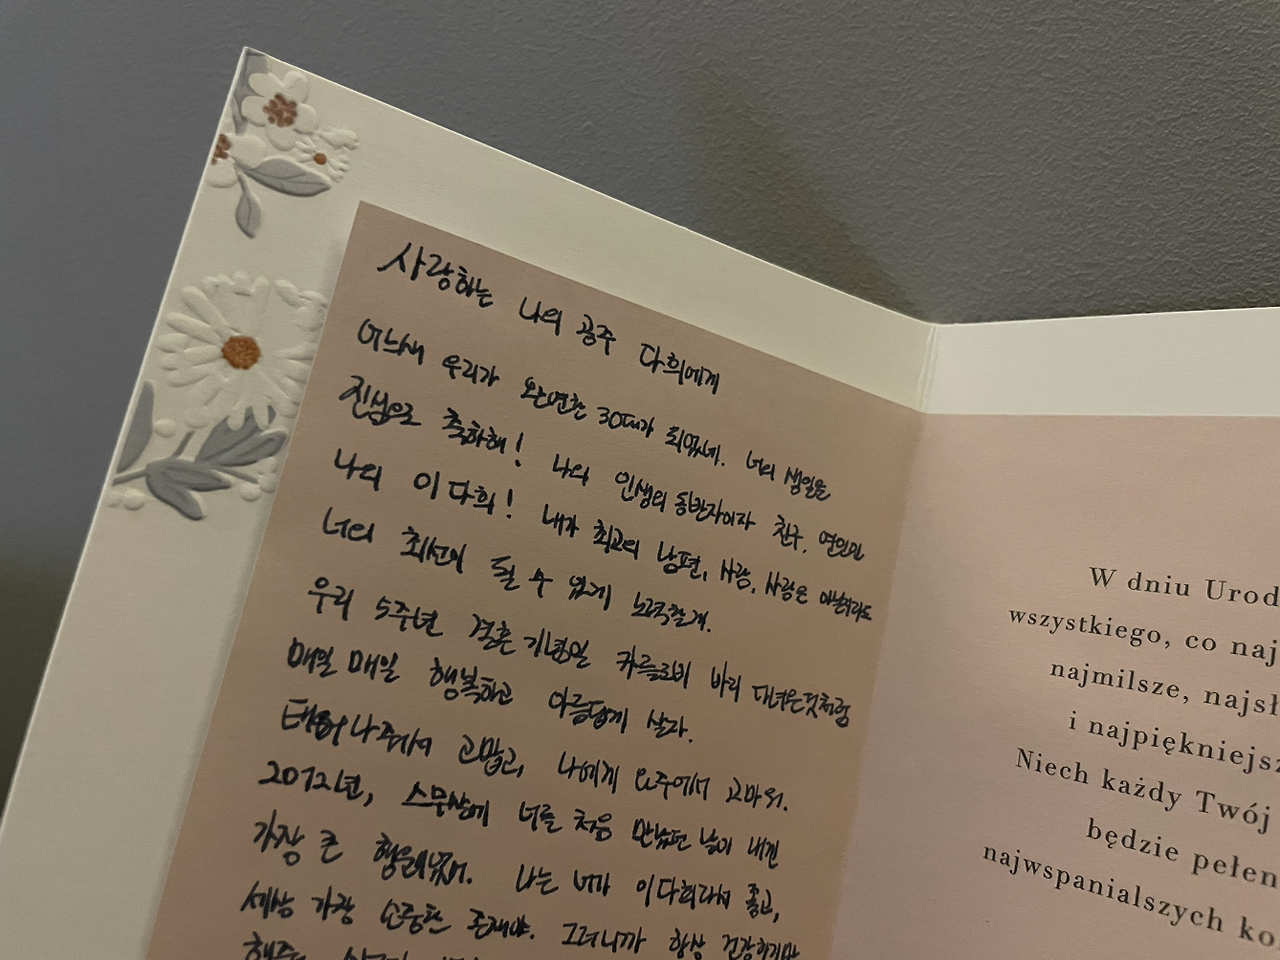 사랑하는 나의 공주 다희에게
어느새 우리가 완연한 30대가 되었네. 너의 생일을
진심으로 축하해! 나의 인생의 동반자이자 친구, 연인인
나의 이다희! 내가 최고의 남편, 사람, 사랑은 아닐지라도
너의 최선이 될 수 있게 노력할게.
우리 5주년 결혼기념일 카를로비 바리 다녀온것처럼
매일매일 행복하고 아름답게 살자.
태어나줘서 고맙고, 나에게 와주어서 고마워.
2012년, 스무살에 너를 처음 만났던 날이 내겐
가장 큰 행운이었어. 나는 너가 이다희라서 좋고,
세상 가장 소중한 존재야. 그러니까 항상 건강하기만
해줘.
W dniu Urod
wszystkiego, co naj
najmilsze, najsł
i najpiękniejsz
Niech każdy Twój
będzie pełen
najwspanialszych ko